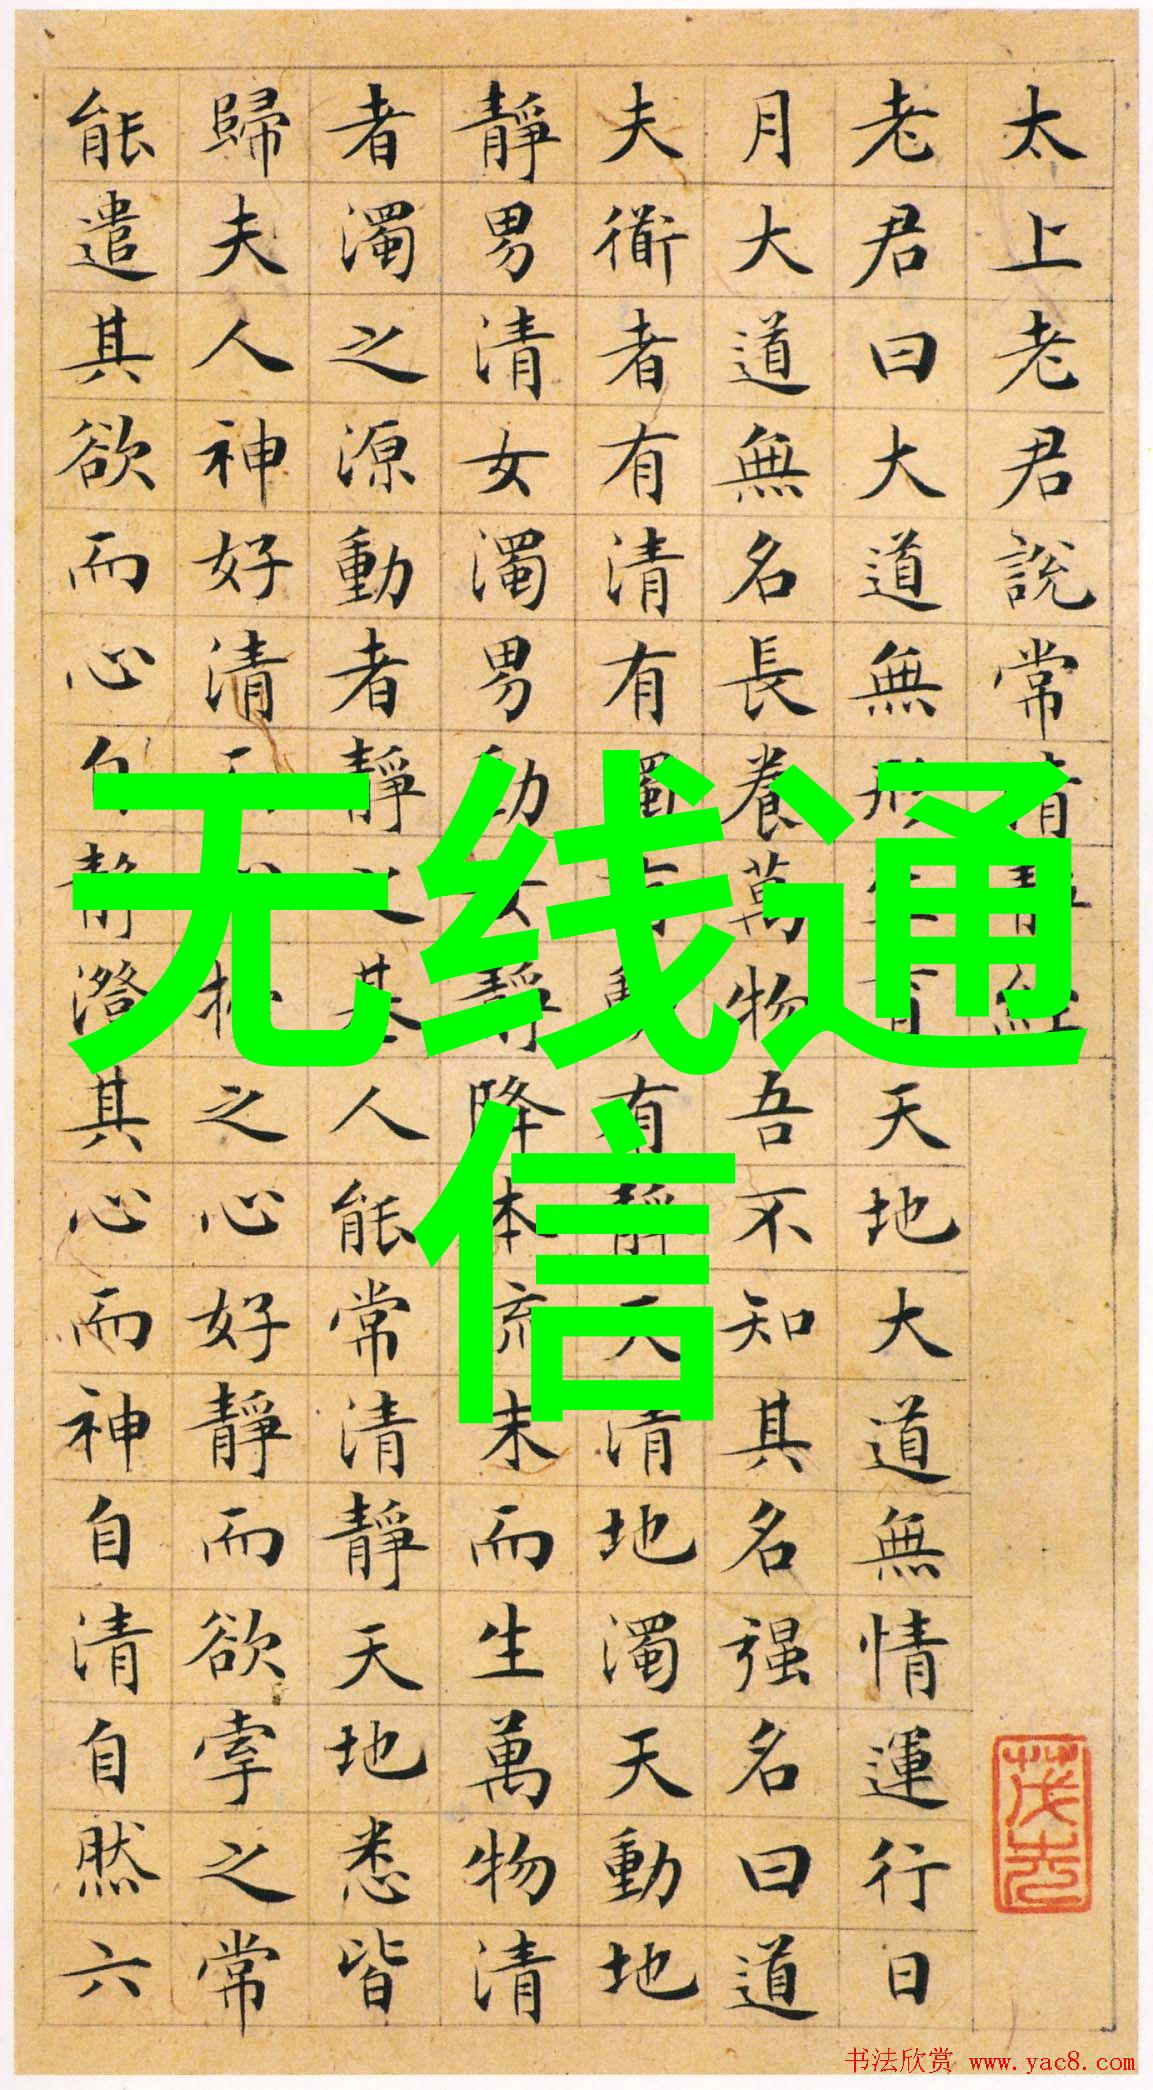 太上老君說常清靜經
老君曰大道無形生育天地大道無情運行日
月大道無名長養萬物吾不知其名强名曰道
夫衜者有清有濁有動有靜天清地濁天動地
靜男清女濁男動女靜降本流末而生萬物清
者濁之源動者靜之基人能常清靜天地悉皆
歸夫人神好清之心好靜而欲牽之常
能遣其欲而心自靜澄其心而神自清自然六
无线通
信
茂先
书法欣赏 www.yac8.com